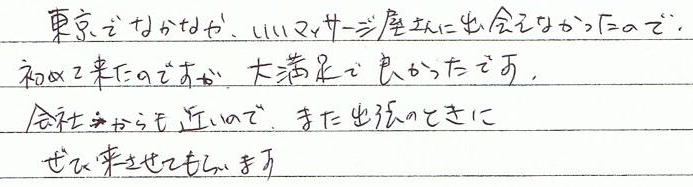 東京でなかなか、いいマッサージ屋さんに出会えなかったので、
初めて来たのですが 大満足で良かったです。
会社からも近いので、また出張のときに
ぜひ来させてもらいます